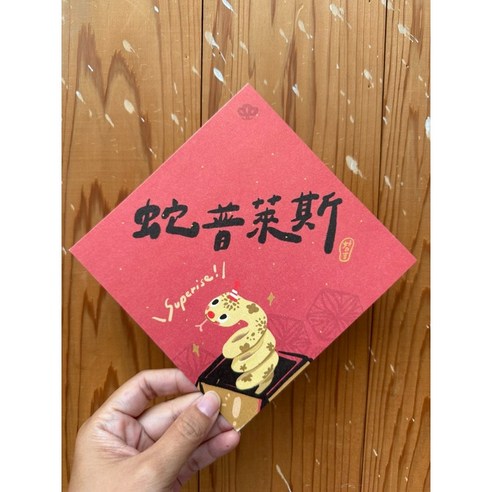 蛇普萊斯
Superise!